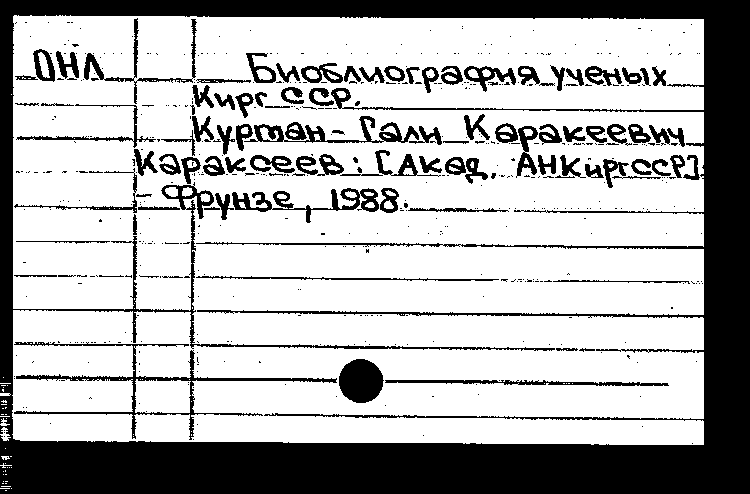 ОНЛ Биоблиография ученых
Кирг ССР.
Курман-Гали Каракеевич
Караксеев: [Акад. АНКиргССР].
- Фрунзе, 1988.